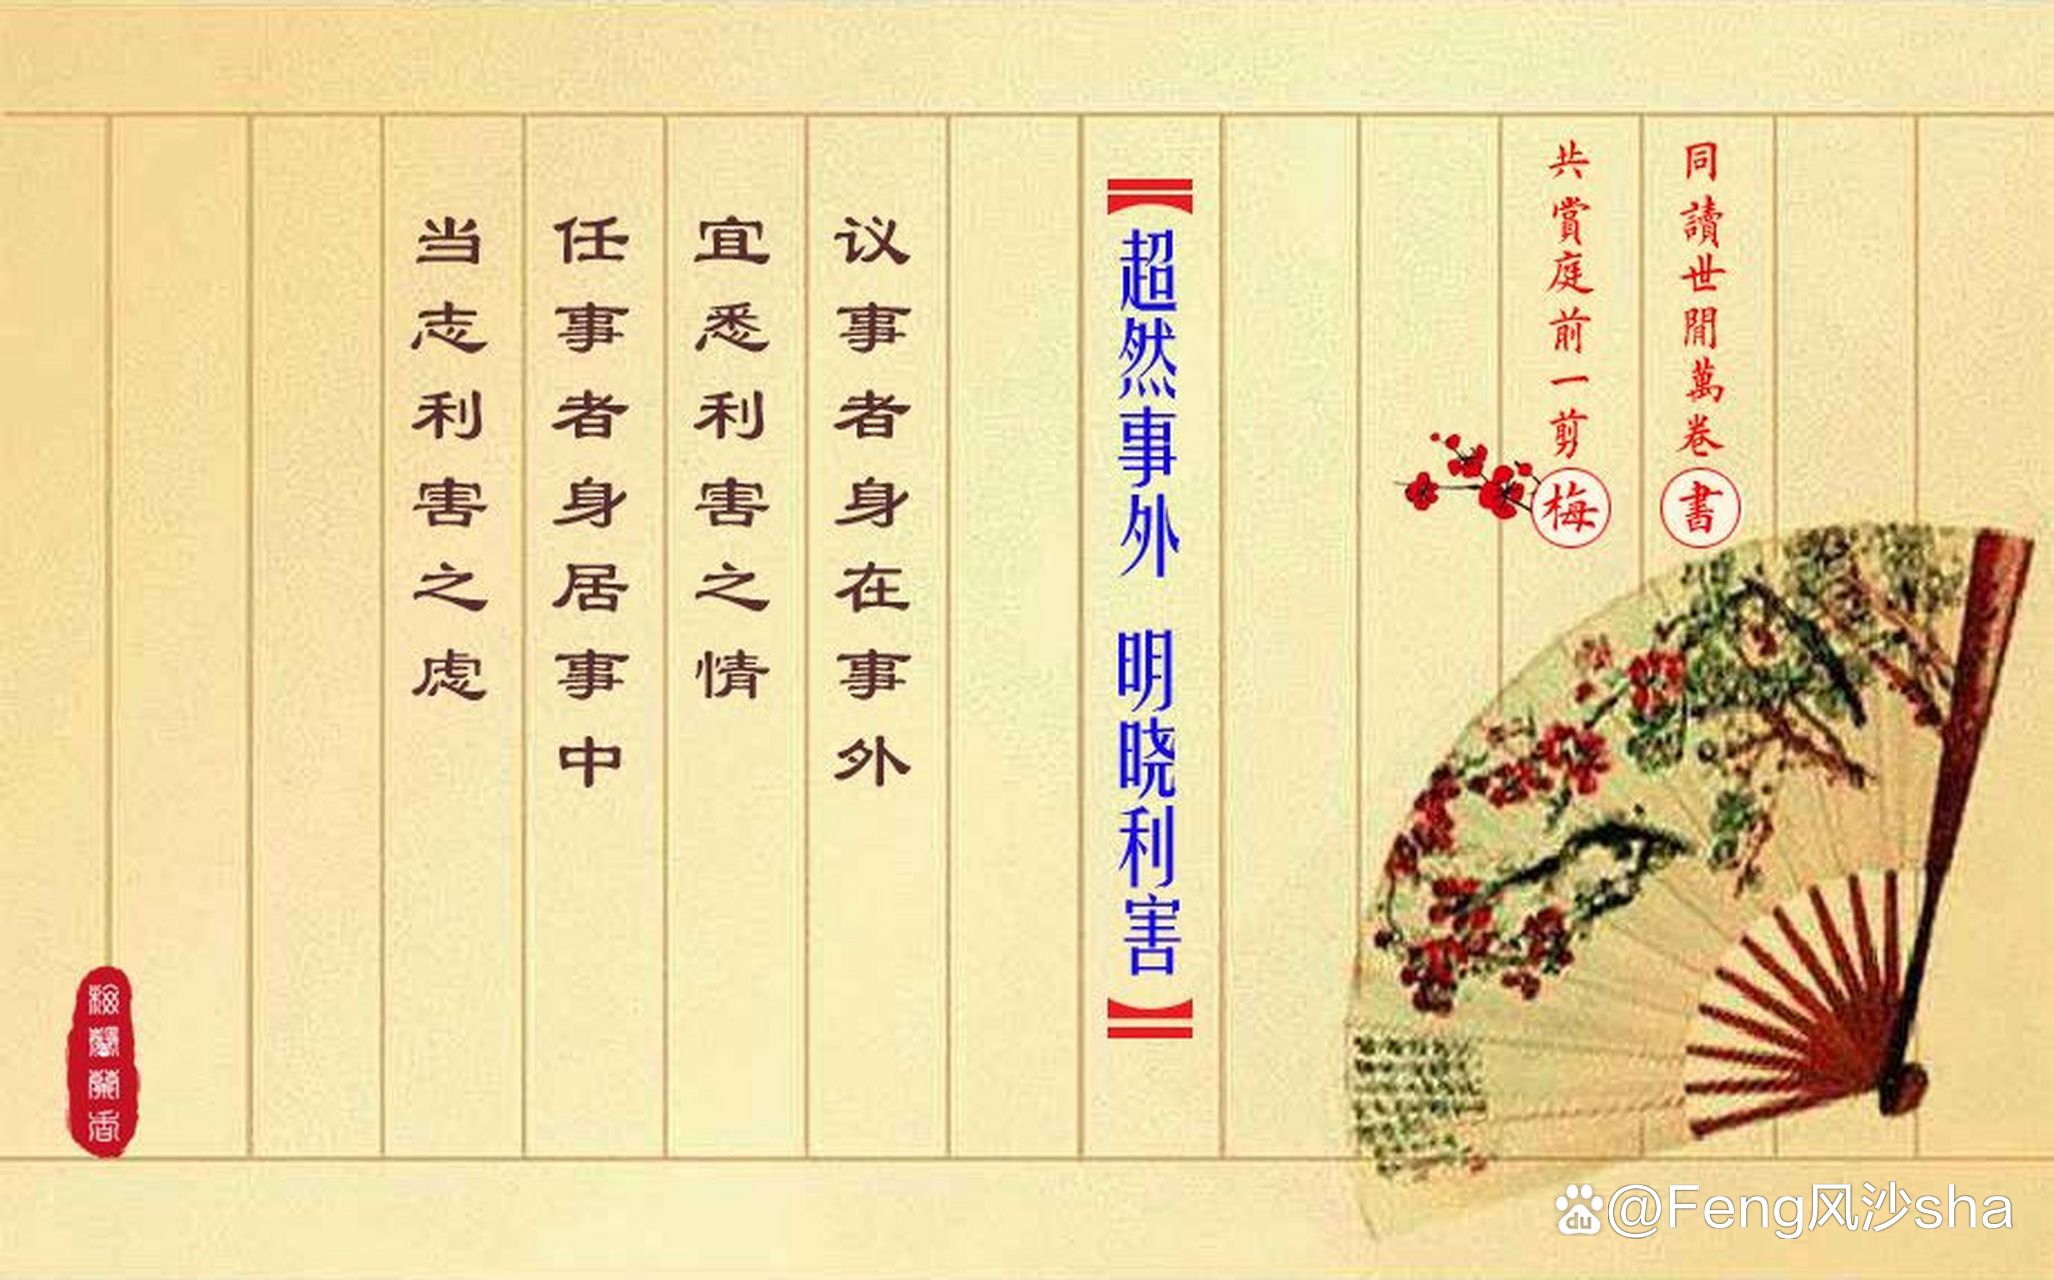 同讀世閒萬卷書
共賞庭前一剪梅
【超然事外 明晓利害】
议事者身在事外
宜悉利害之情
任事者身居事中
当志利害之虑
du
@Feng风沙sha